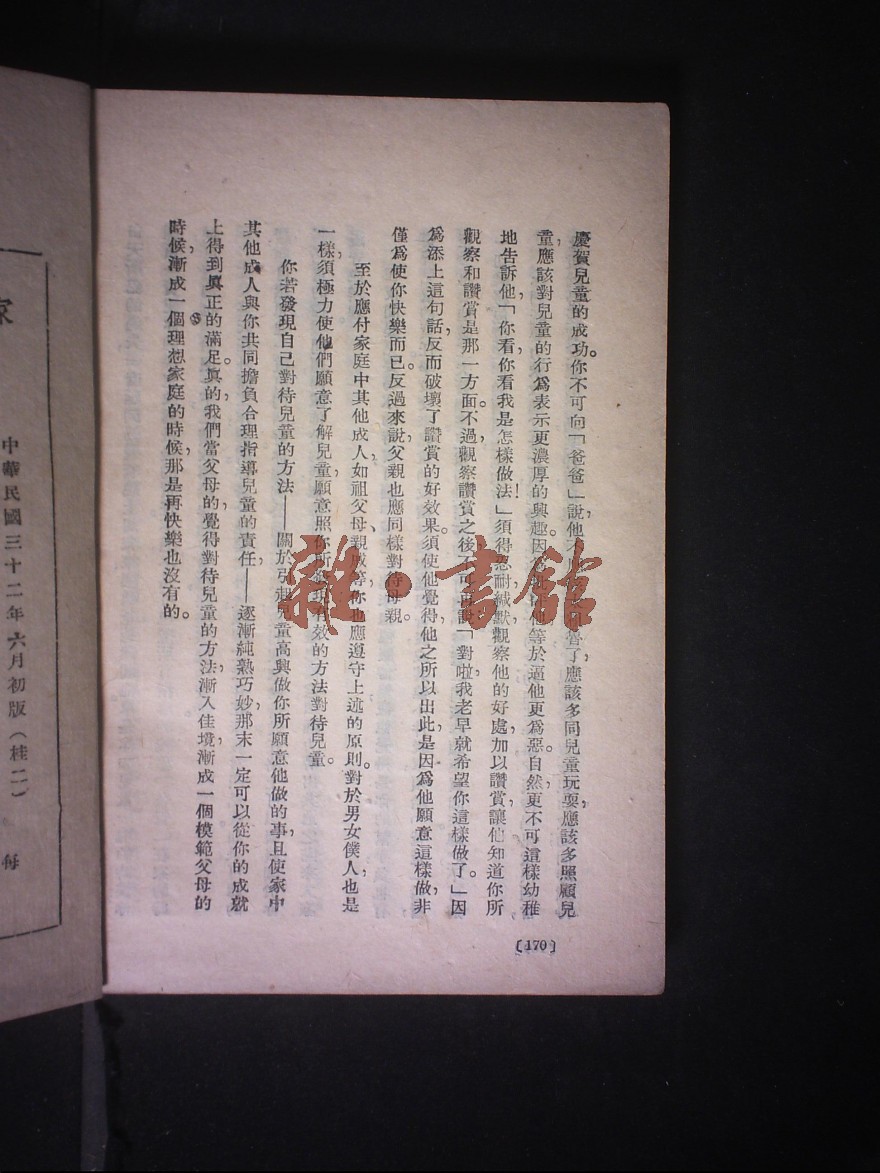 慶賀兒童的成功。你不可向「爸爸」說，他不 督了，應該多同兒童玩耍，應該多照顧兒
童，應該對兒童的行爲表示更濃厚的興趣。因爲 他等於逼他更爲惡。自然，更不可這樣幼稚
地告訴他「你看，你看我是怎樣做法！」須得忍耐緘默，觀察他的好處，加以讚賞，讓他知道你所
觀察和讚賞是那一方面。不過，觀察讚賞之後，不可再說「對啦，我老早就希望你這樣做了。」因
爲添上這句話，反而破壞了讚賞的好效果。須使他覺得，他之所以出此，是因爲他願意這樣做，非
僅爲使你快樂而已。反過來說，父親也應同樣對待母親。
至於應付家庭中其他成人，如祖父母、親戚等，你也應遵守上述的原則。對於男女僕人，也是
一樣，須極力使他們願意了解兒童，願意照你所 有效的方法對待兒童。
你若發現自己對待兒童的方法——關於引起兒童高興做你所願意他做的事，且使家中
其他成人與你共同擔負合理指導兒童的責任，——逐漸純熟巧妙，那末一定可以從你的成就
上得到眞正的滿足。眞的，我們當父母的，覺得對待兒童的方法，漸入佳境，漸成一個模範父母的
時候，漸成一個理想家庭的時候，那是再快樂也沒有的。
〔170〕
家
中華民國三十二年六月初版（桂二）
每
雜·書館